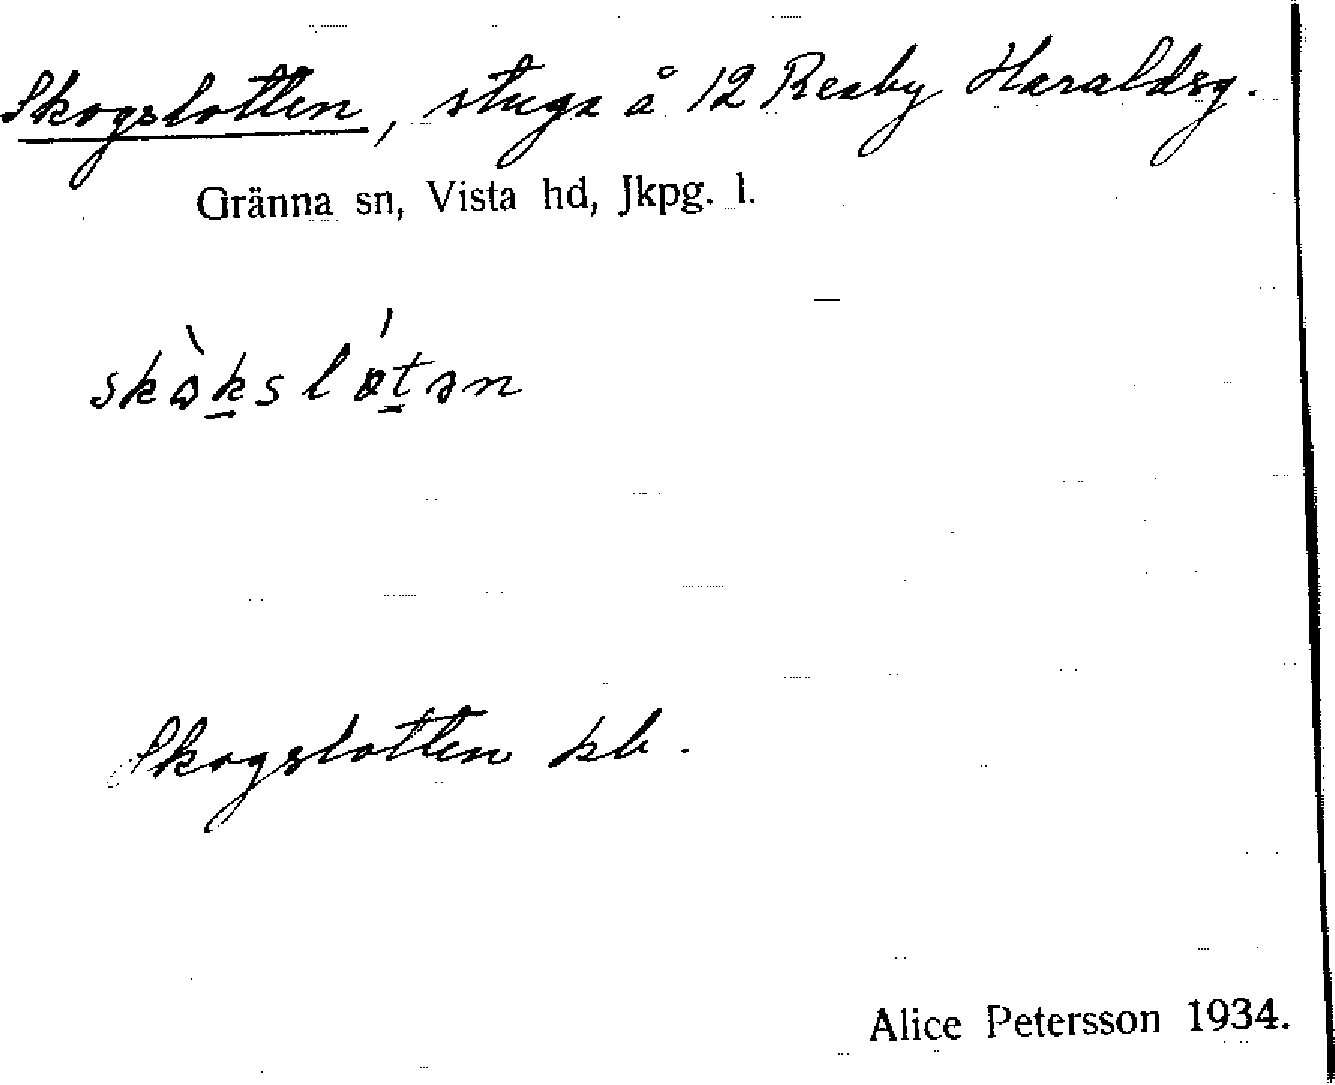 Skogslotten, stuga å 12 Reaby Haraldsg.
Gränna sn, Vista hd, Jkpg. l.
skòkslótən
Skogslotten kb.
Alice Petersson 1934.